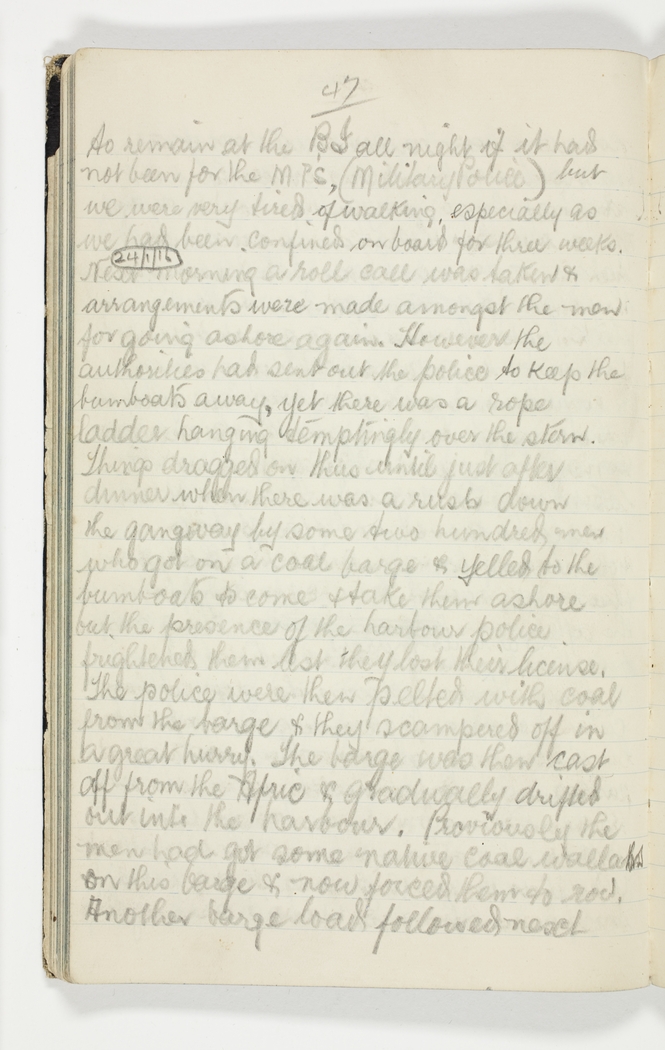 47
to remain at the BJ all night if it had
not been for the M P'S, (Military Police) but
we were very tired of walking, especially as
we had been confined on board for three weeks.
24/1/16
Next morning a roll call was taken &
arrangements were made amongst the men
for going ashore again. However the
authorities had sent out the police to keep the
bumboats away, yet there was a rope
ladder hanging temptingly over the stern.
Things dragged on thus until just after
dinner when there was a rush down
the gangway by some two hundred men
who got on a coal barge & yelled to the
bumboats to come & take them ashore
but the presence of the harbour police
frightened them lest they lost their license.
The police were then pelted with coal
from the barge & they scampered off in
a great hurry. The barge was then cast
off from the Afric & gradually drifted
out into the harbour. Proviously the
men had got some native coal wallahs
on this barge & now forced them to row.
Another barge load followed next